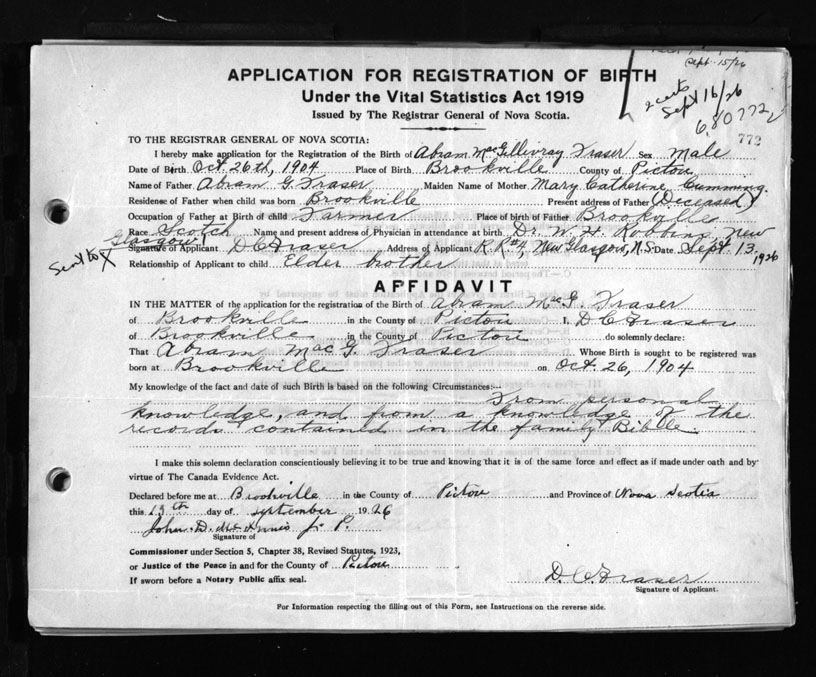 Sept 15/26
APPLICATION FOR REGISTRATION OF BIRTH
Under the Vital Statistics Act 1919
2 certs
Sept 16/26
Issued by The Registrar General of Nova Scotia.
680772
772
TO THE REGISTRAR GENERAL OF NOVA SCOTIA:
I hereby make application for the Registration of the Birth of Abram MacGillivray Fraser Sex Male
Date of Birth Oct. 26th, 1904 Place of Birth Brookville County of Pictou
Name of Father Abram G. Fraser Maiden Name of Mother Mary Catherine Cumming
Residence of Father when child was born Brookville Present address of Father (Deceased)
Occupation of Father at Birth of child Farmer Place of birth of Father Brookville
Race Scotch Name and present address of Physician in attendance at birth Dr. W. H. Robbins, New
Glasgow
Signature of Applicant D C Fraser Address of Applicant R. R. #4, New Glasgow, N.S. Date Sept. 13, 1926
Sent to X
Relationship of Applicant to child Elder brother
AFFIDAVIT
IN THE MATTER of the application for the registration of the Birth of Abram McG. Fraser
of Brookville in the County of Pictou I, D C Fraser
of Brookville in the County of Pictou do solemnly declare:
That Abram MacG. Fraser Whose Birth is sought to be registered was
born at Brookville on Oct. 26, 1904
My knowledge of the fact and date of such Birth is based on the following Circumstances:—
From personal
knowledge, and from a knowledge of the
records contained in the family Bible.
I make this solemn declaration conscientiously believing it to be true and knowing that it is of the same force and effect as if made under oath and by
virtue of The Canada Evidence Act.
Declared before me at Brookville in the County of Pictou and Province of Nova Scotia
this 13th day of September 1926
John D. J. P.
Signature of
Commissioner under Section 5, Chapter 38, Revised Statutes, 1923,
or Justice of the Peace in and for the County of Pictou
If sworn before a Notary Public affix seal.
D. C. Fraser
Signature of Applicant.
For Information respecting the filling out of this Form, see Instructions on the reverse side.